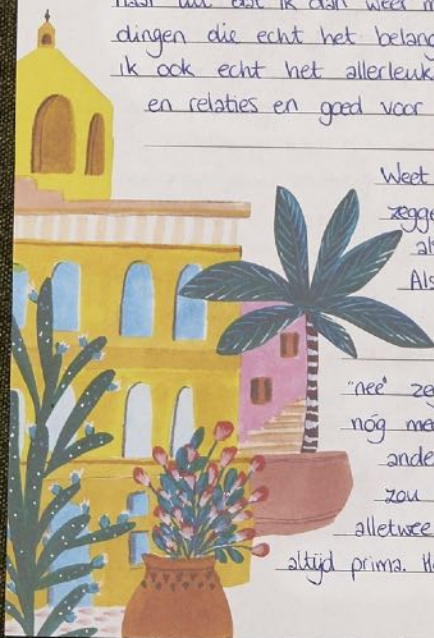 naar uit dat ik dan weer m
dingen die echt het belang
ik ook echt het allerleuk
en relaties en goed voor
Weet
zegge
al
Als
"nee" ze
nóg me
ande
zou
alletwee
altijd prima. H